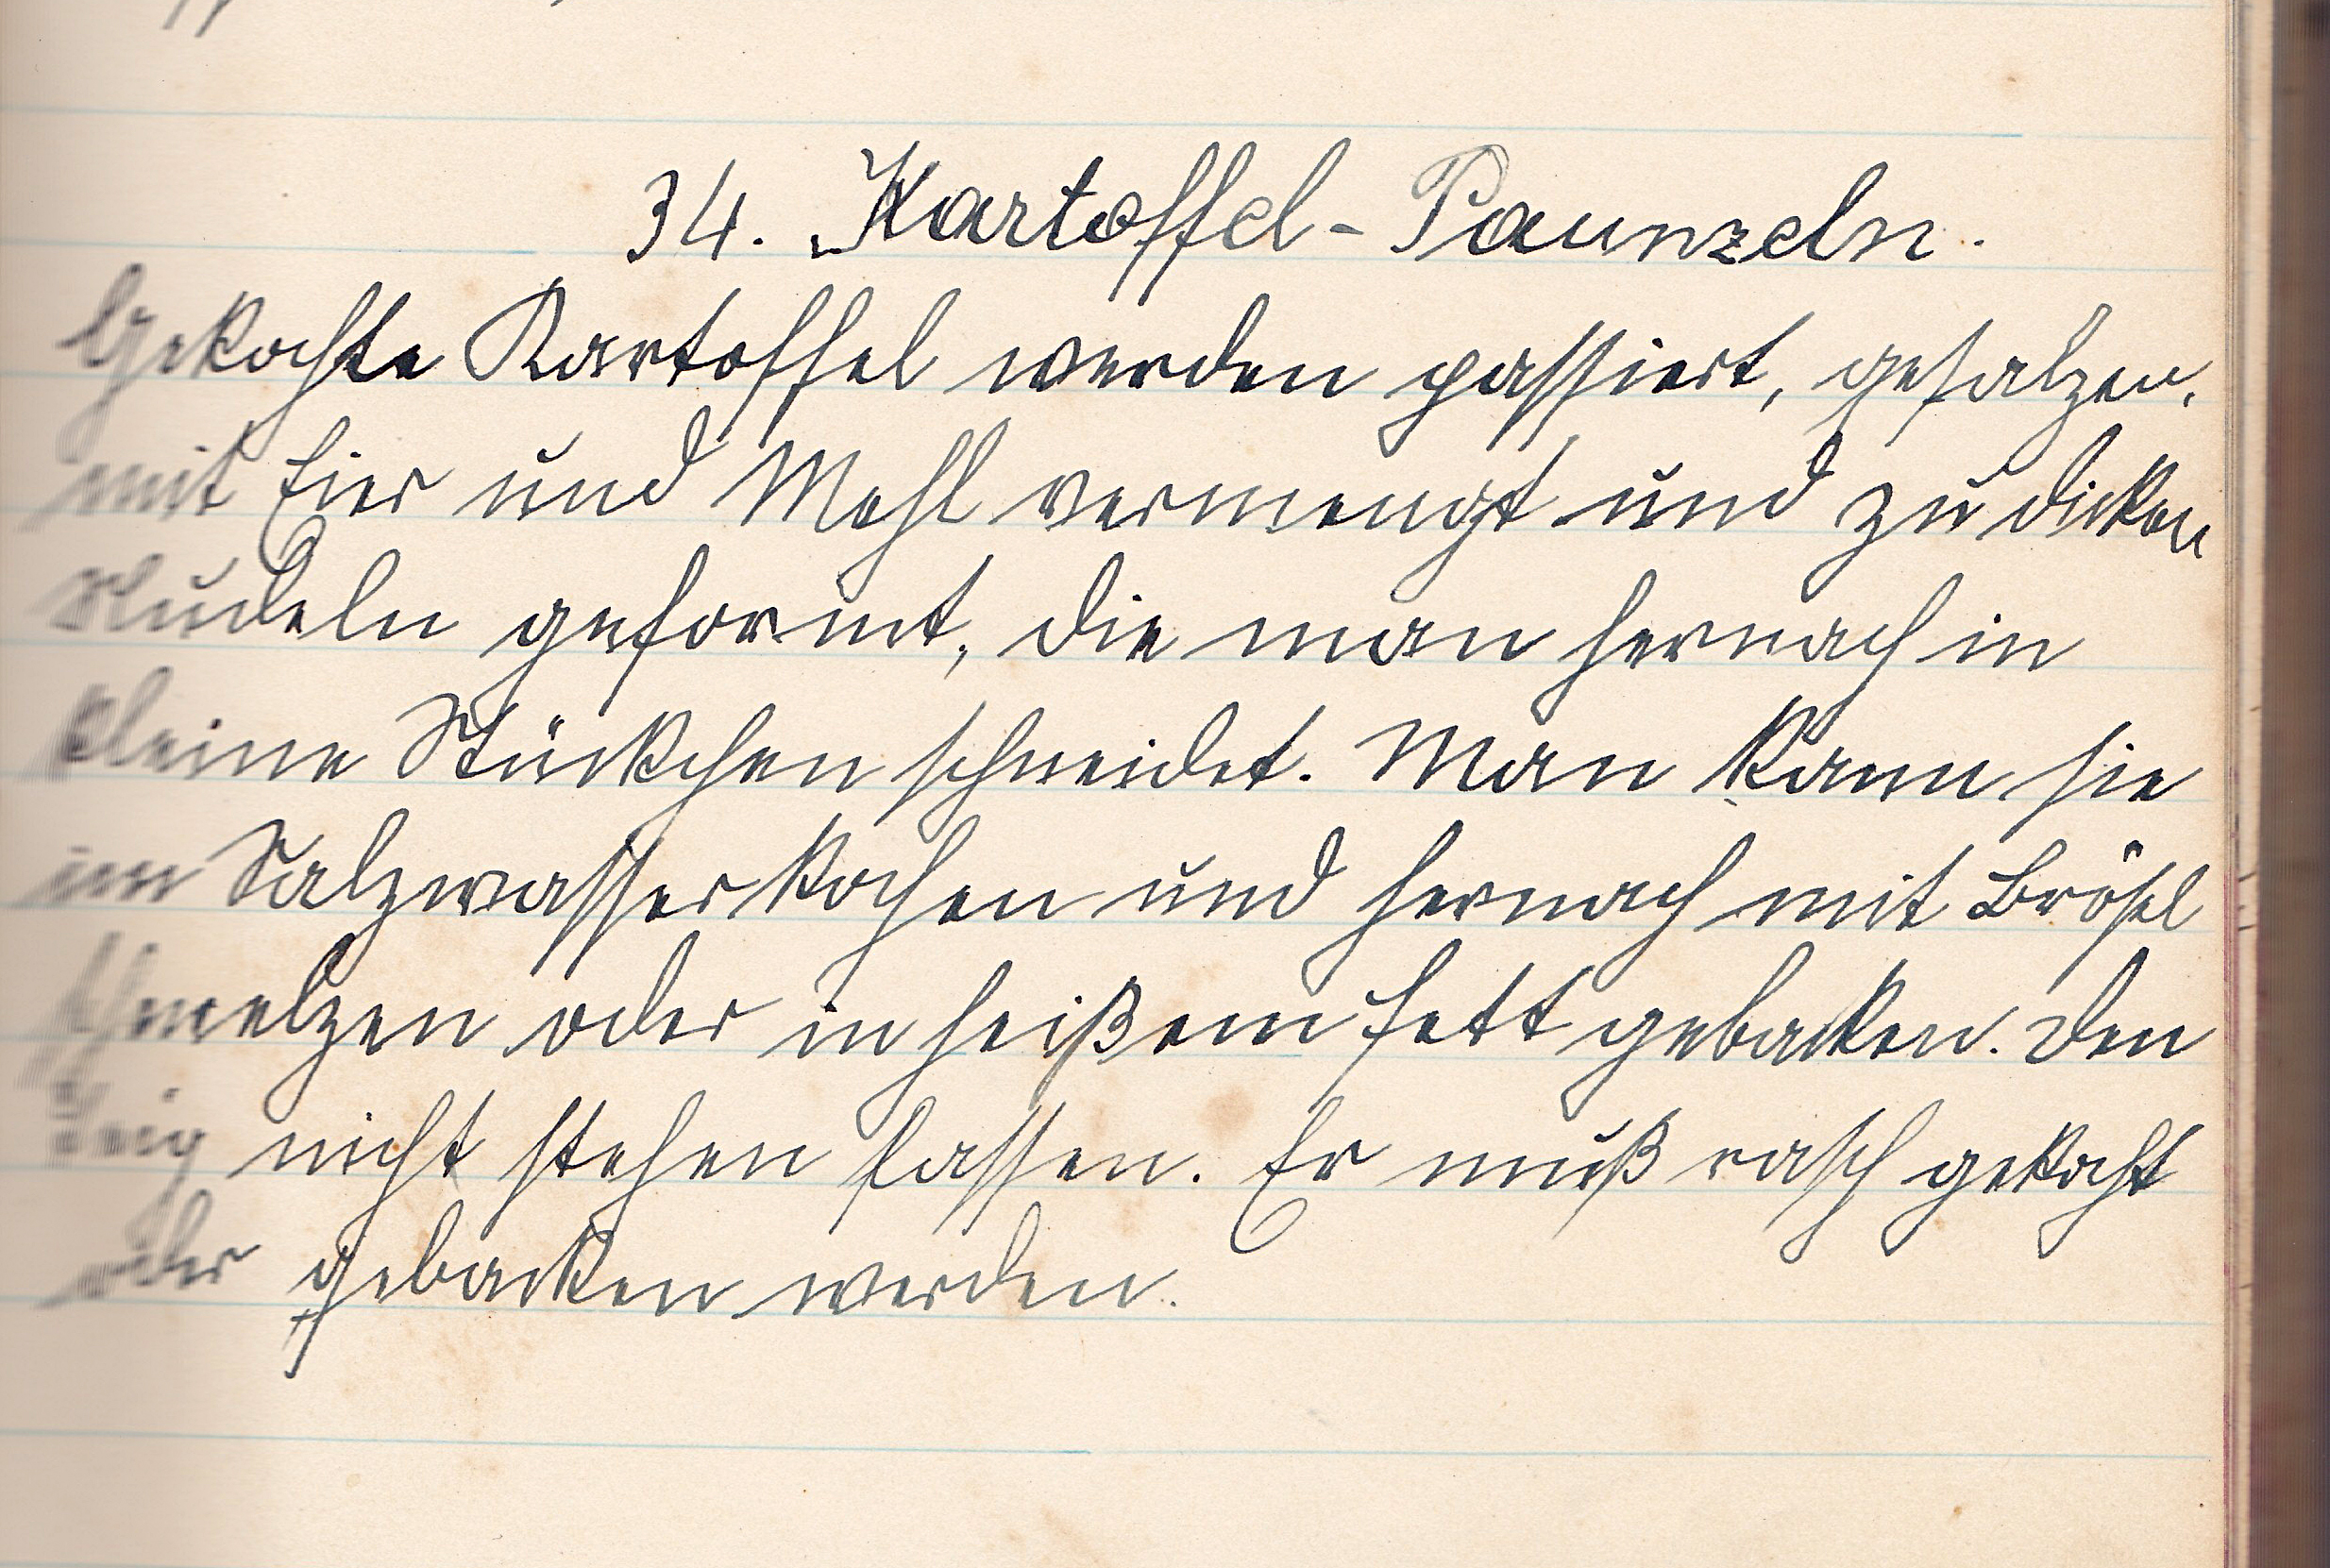 34. Kartoffel-Paunzeln.
Gekochte Kartoffel werden passiert, gesalzen,
mit Eier und Mehl vermengt und zu dicken
Nudeln geformt, die man hernach in
kleine Stückchen schneidet. Man kann sie
im Salzwasser kochen und hernach mit Brösel
schmelzen oder in heißem Fett gebacken. Den
Teig nicht stehen lassen. Er muß rasch gekocht
oder gebacken werden.